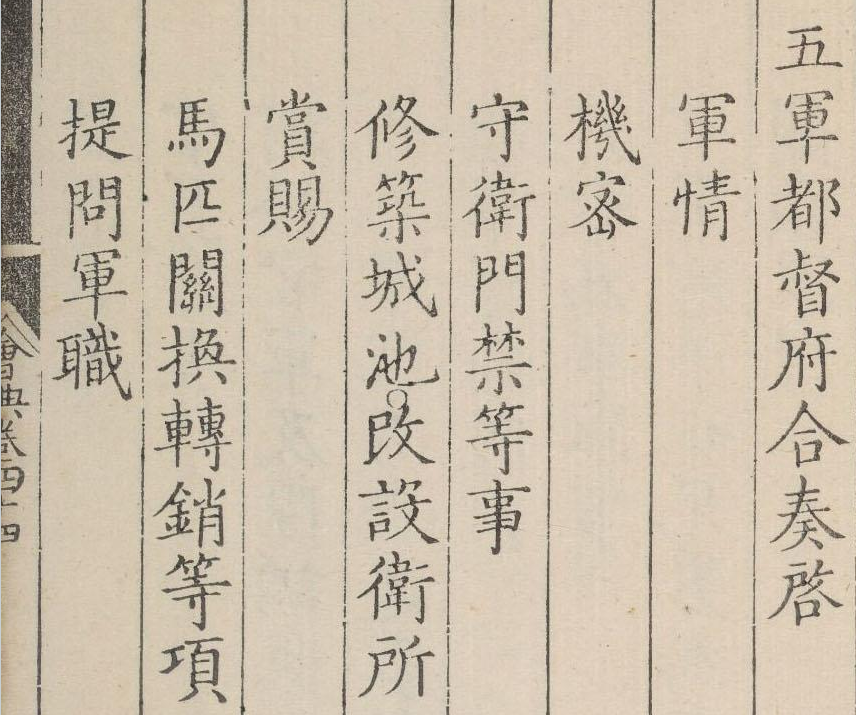 五軍都督府合奏啓
軍情
機密
守衛門禁等事
修築城池○改設衛所
賞賜
馬匹關換轉銷等項
提問軍職
會典卷四十四